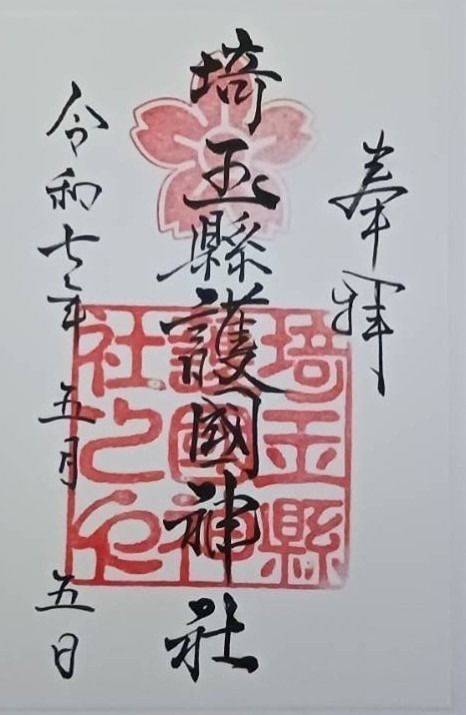 奉拝
埼玉縣護國神社
埼玉縣
護國神
社之印
令和七年 五月 五日